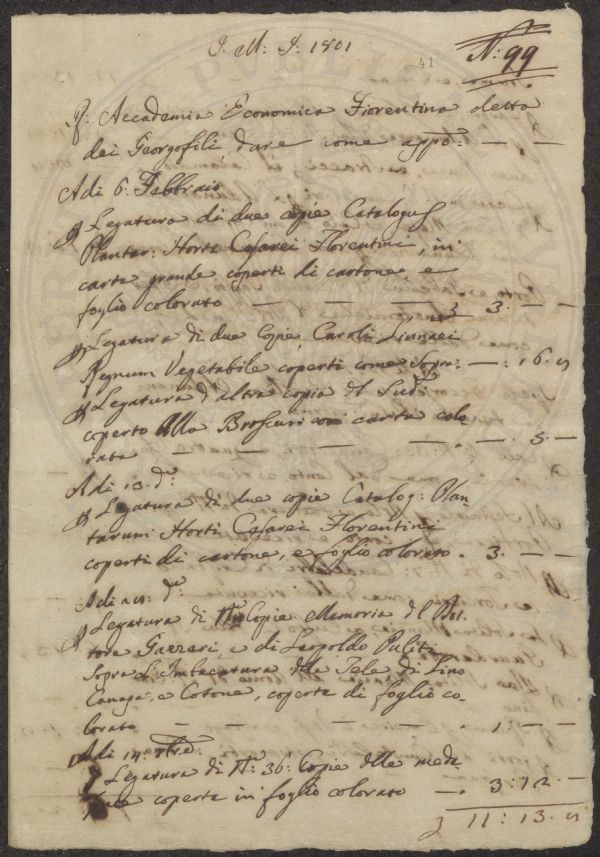 J. M: J: 1801
41
N: 99
Accademia Economica Fiorentina detta
dei Georgofili, dare come appo: — —
Adi 6: Febbraio
Legatura di due copie Catalogus
Plantar: Horti Cesarei Florentini, in
carta grande coperti di cartone, e
foglio colorato — — — 3. — —
Legatura di due Copie, Caroli Linnaei
Regnum Vegetabile coperti come Sopra: — : 16. —
Legatura d'altra copia del Sud.
coperto Alla Broscur con carta colo
rata — — — — . — 5. —
Adi 13. d:
Legatura di due copie Catalog: Plan
tarum Horti Cesarei Florentini
coperti di cartone, e foglio colorato . 3. — —
Adi d:
Legatura di N: Copie Memoria del Dot
tore Gazzari, e di Leopoldo
Sopra L'Imbacatura delle Tele di Lino
Canapa, e Cotone, coperte di foglio co
lorato — — — — . 1 — —
Adi 14:
Legatura di N: 36: Copie delle mede
coperte in foglio colorato — . 3:12. —
11:13.